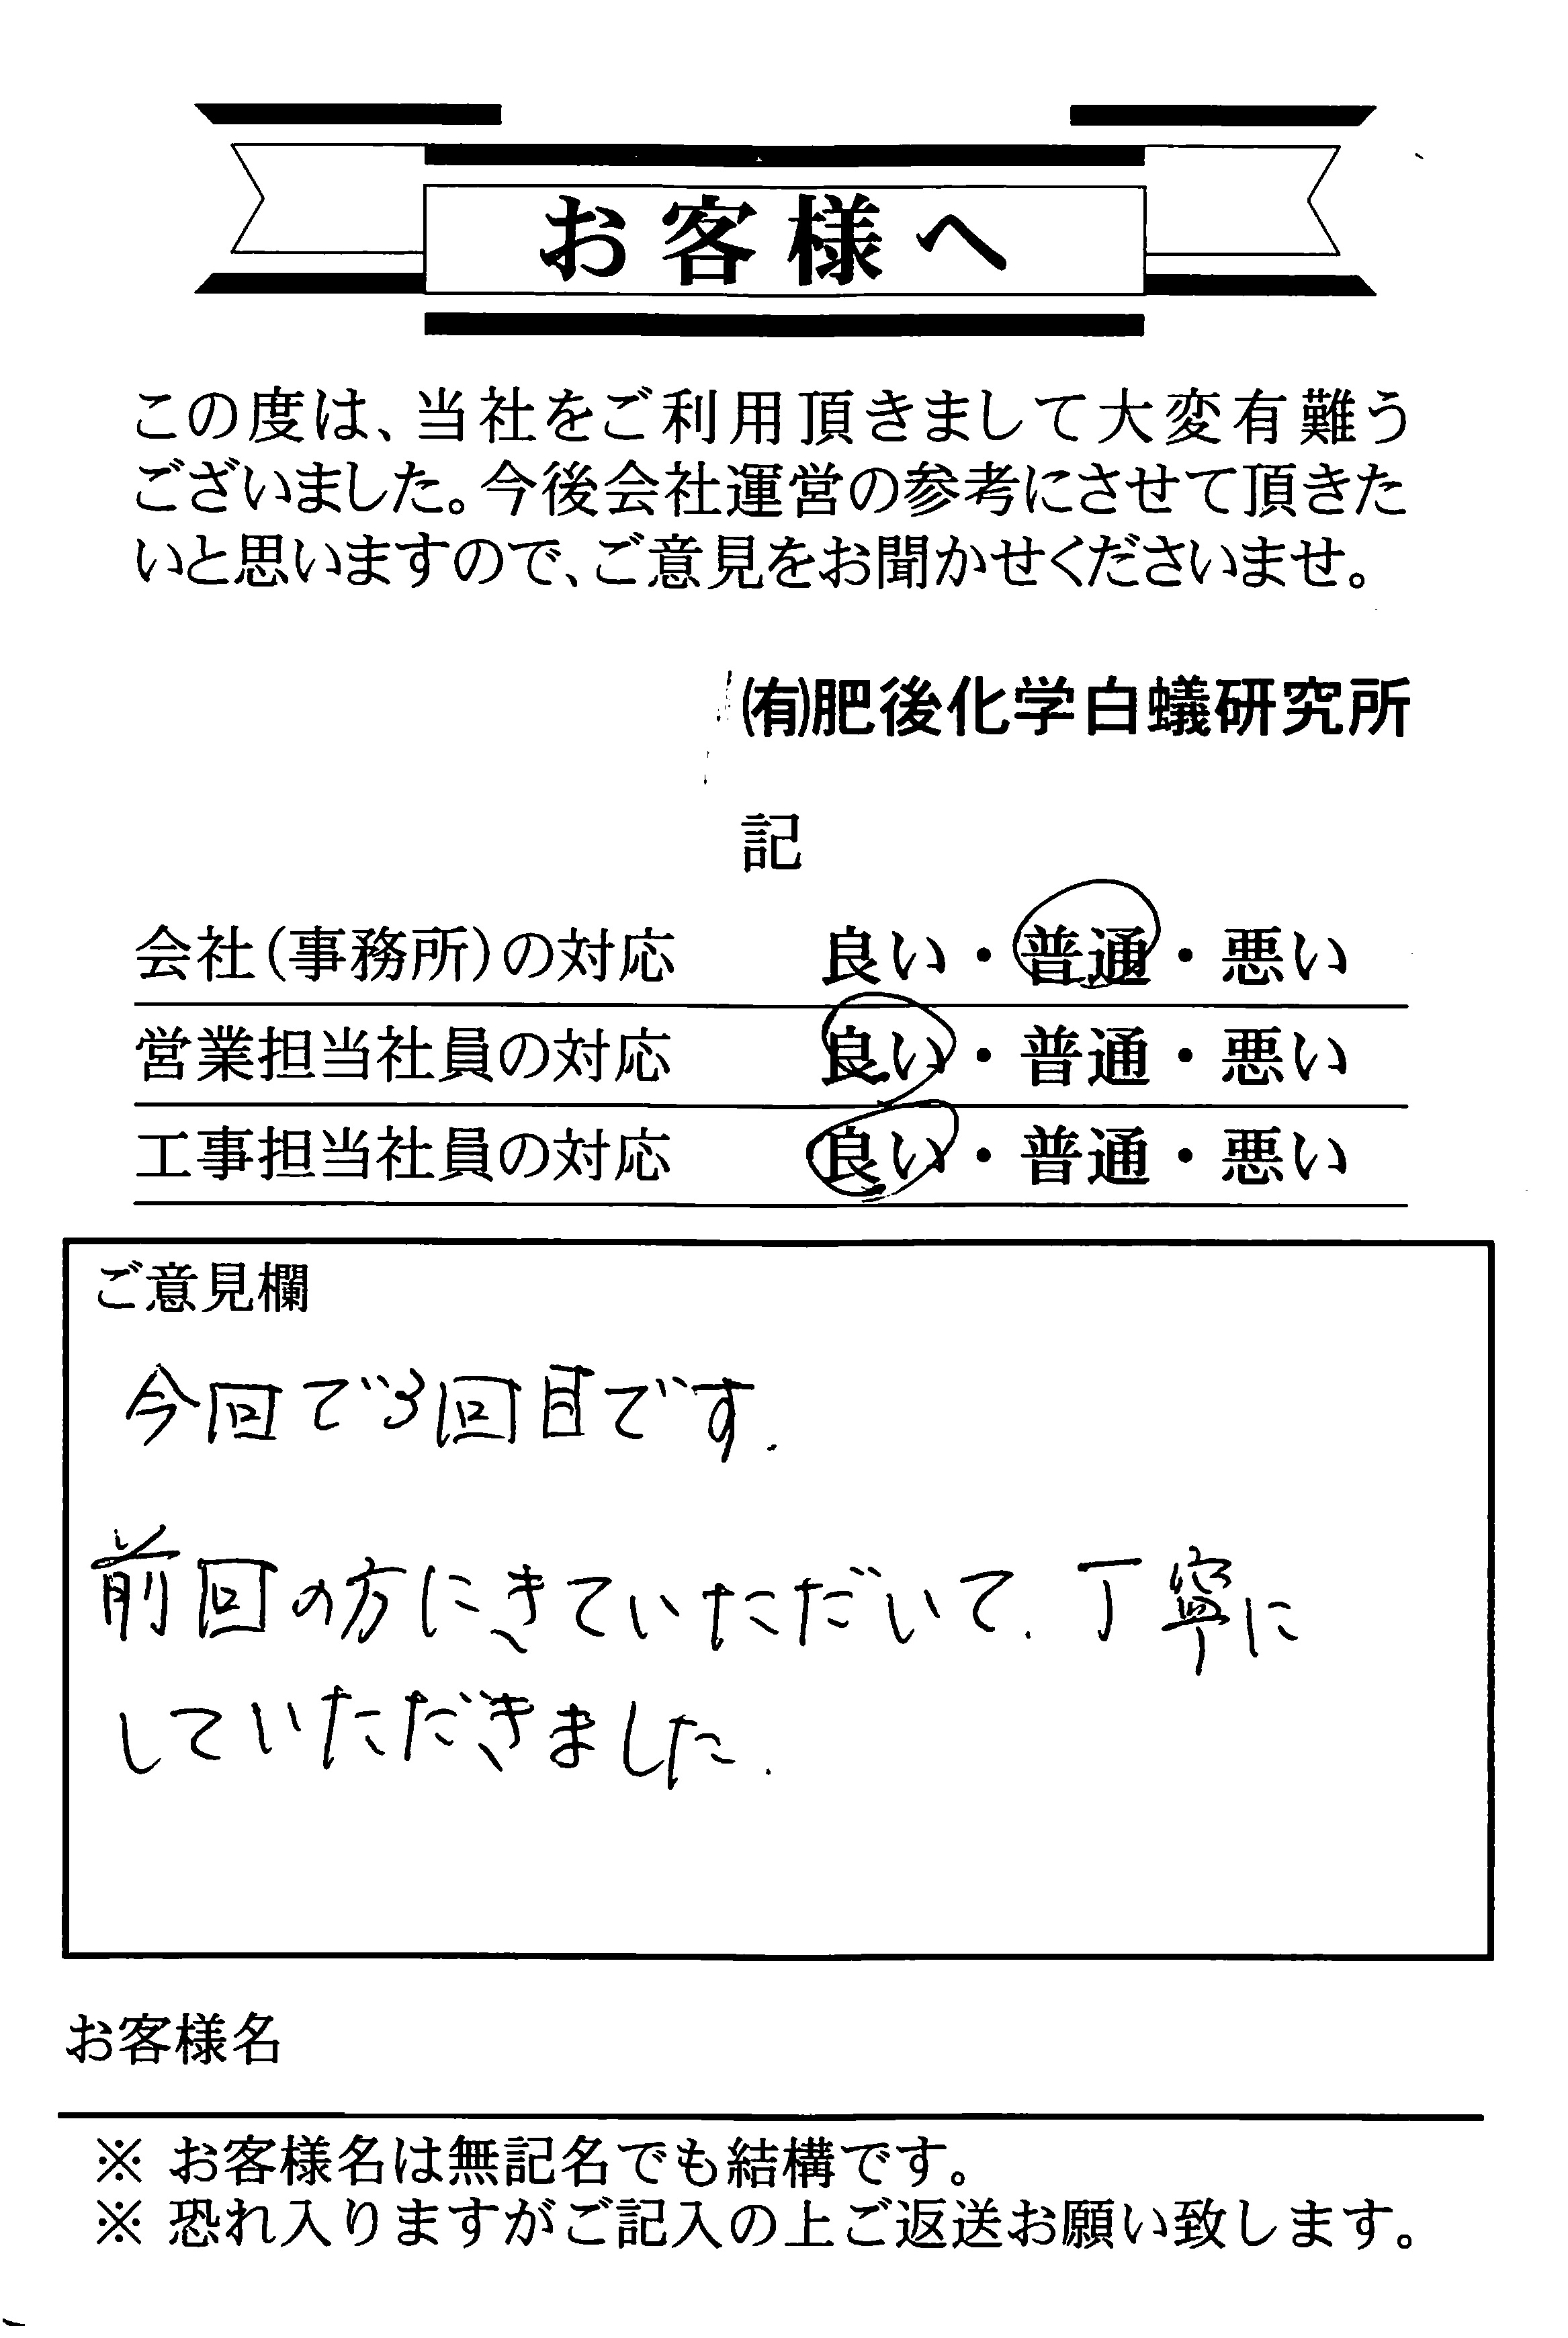 お客様へ
この度は、当社をご利用頂きまして大変有難う
ございました。今後会社運営の参考にさせて頂きた
いと思いますので、ご意見をお聞かせくださいませ。
㈲肥後化学白蟻研究所
記
会社(事務所)の対応 良い・普通・悪い
営業担当社員の対応 良い・普通・悪い
工事担当社員の対応 良い・普通・悪い
ご意見欄
今回で3回目です.
前回の方にきていただいて.丁寧に
していただきました.
お客様名
※ お客様名は無記名でも結構です。
※ 恐れ入りますがご記入の上ご返送お願い致します。